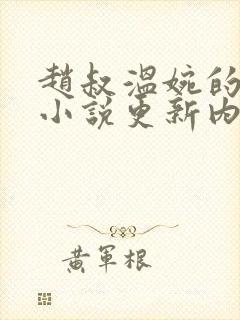 趙叔溫婉的
小說更新內
黃軍根